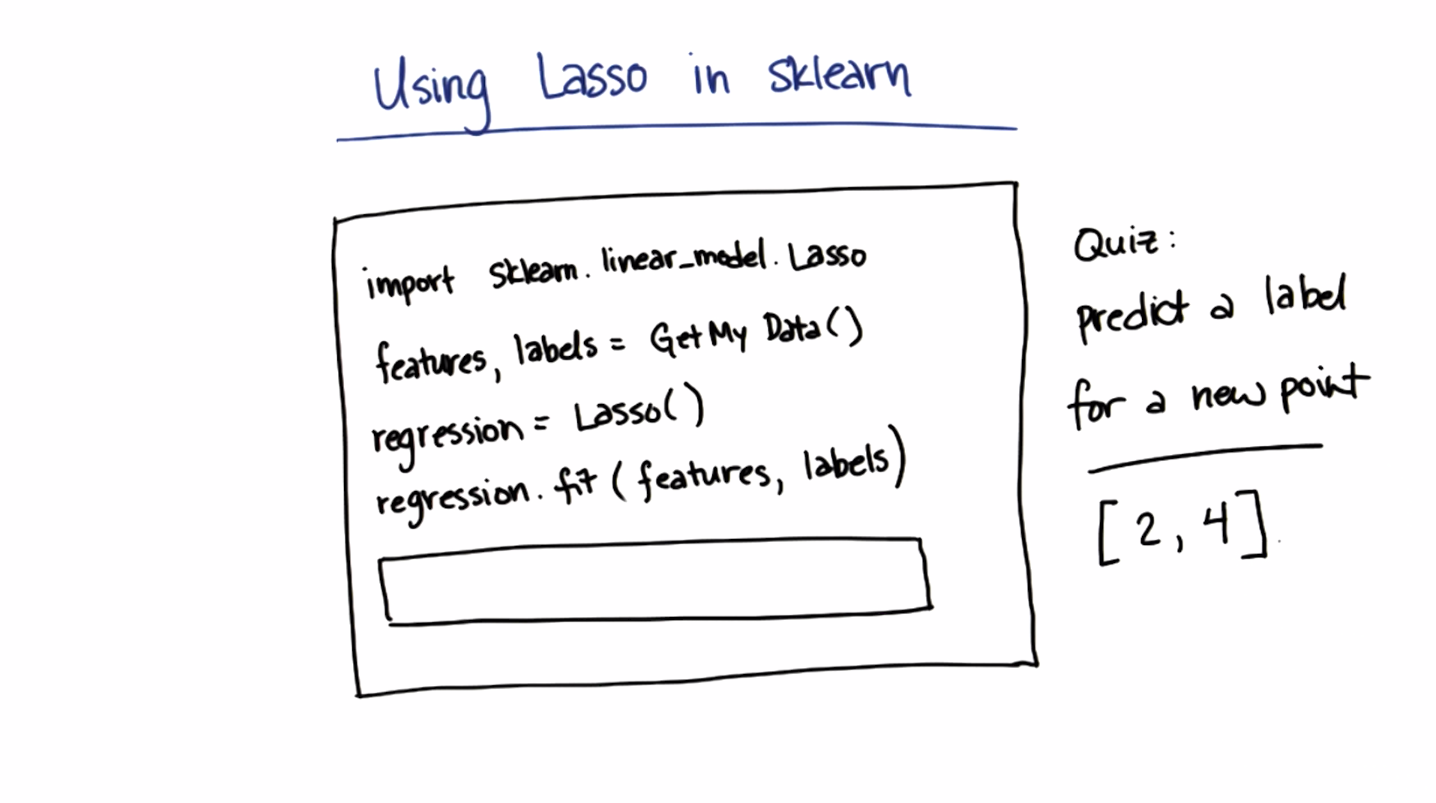 Using Lasso in sklearn
import sklearn.linear_model.Lasso
features, labels = GetMyData()
regression = Lasso()
regression.fit(features, labels)
Quiz:
predict a label
for a new point
[2, 4]